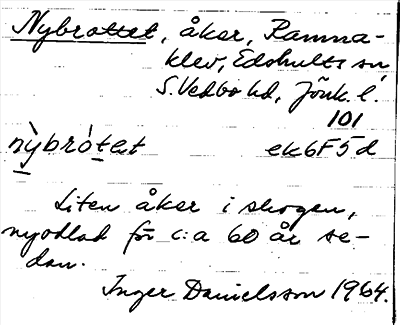 Nybrottet, åker, Ramna-
klev, Edshults sn
S. Vedbo hd, Jönk. l.
101
nỳbrótet ek6F5d
Liten åker i skogen,
nyodlad för c:a 60 år se-
dan.
Inger Danielsson 1964.